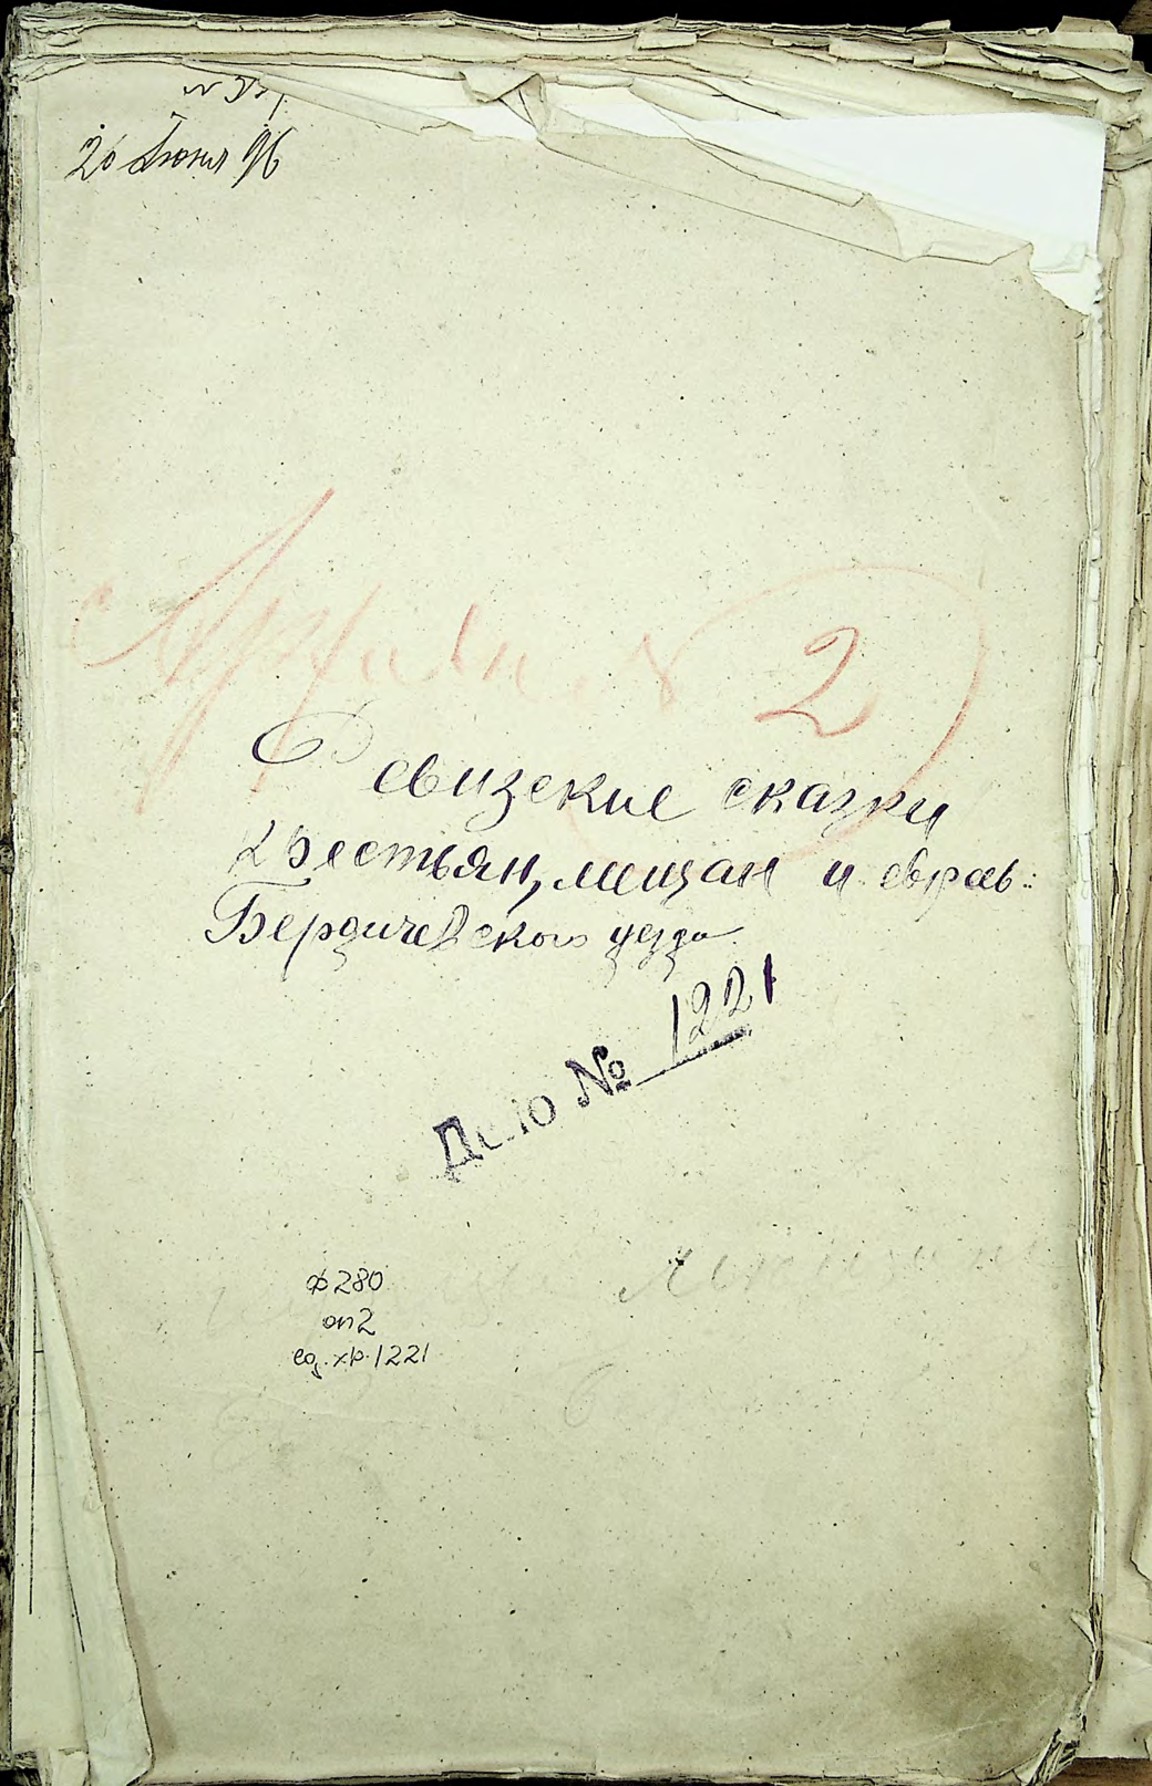 20 Июня 96
№ 2
Ревизские сказки
крестьян, мещан и евреев
Бердичевского уезда.
Дело № 1221
ф 280
оп 2
ед. хр. 1221